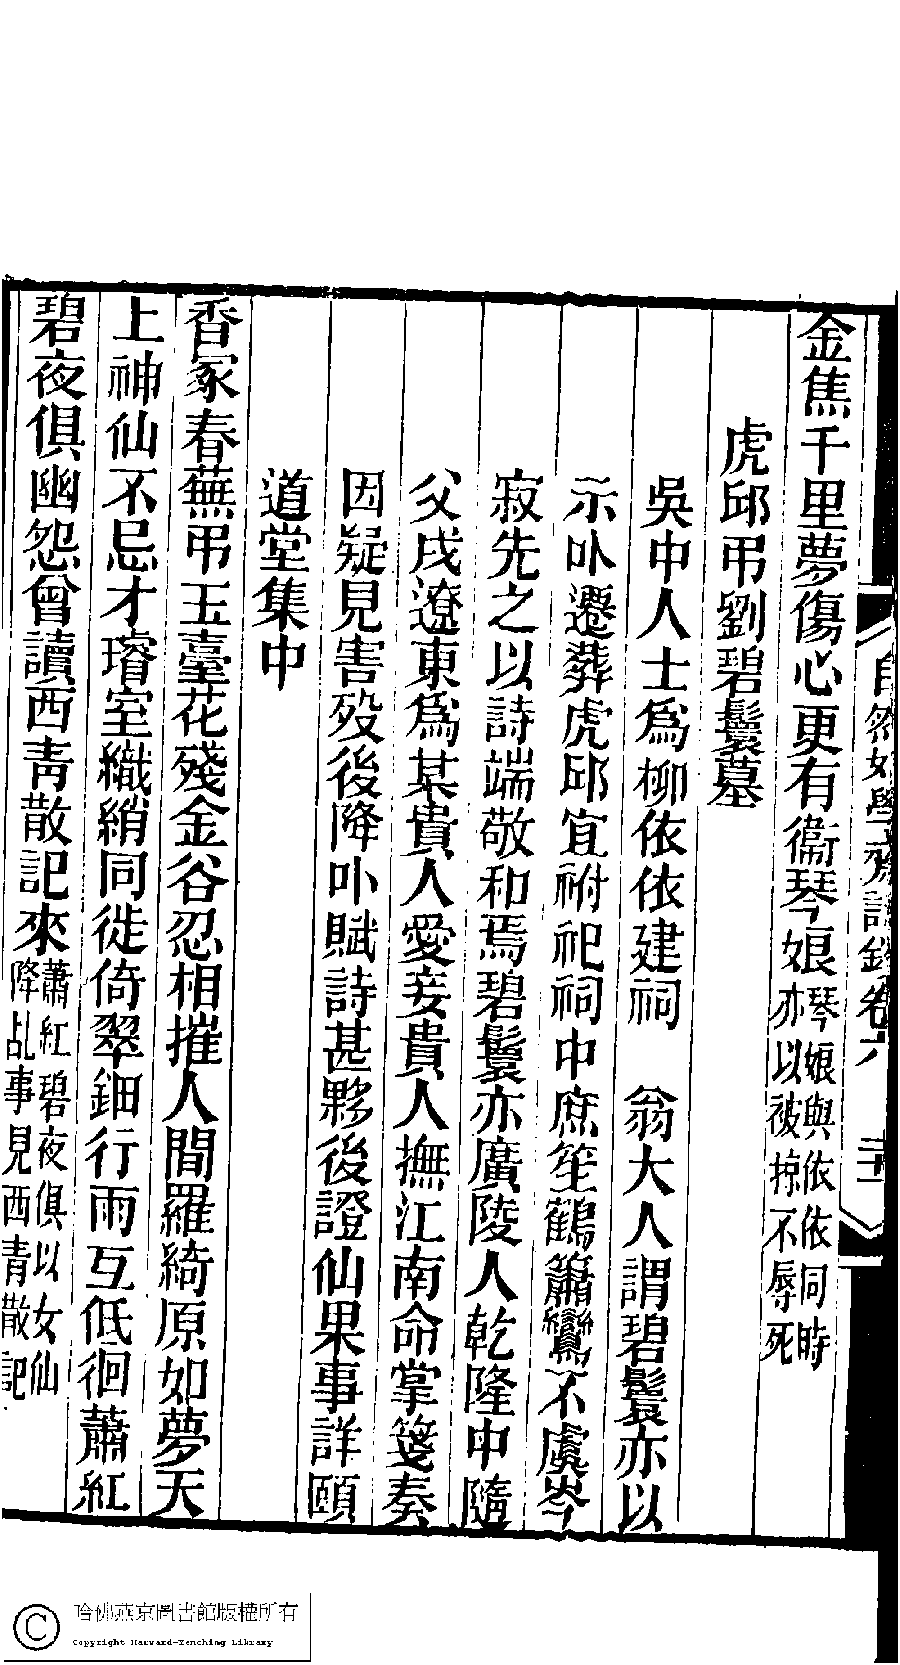 金焦千里夢傷心更有衞琴娘琴娘與依依同時亦以被掠不辱死
虎邱弔劉碧鬟墓
吳中人士爲柳依依建祠　翁大人謂碧鬟亦以
示卟遷葬虎邱宜祔祀祠中庶笙鶴簫鸞不虞岑
寂先之以詩端敬和焉碧鬟亦廣陵人乾隆中隨
父戍遼東爲某貴人愛妾貴人撫江南命掌箋奏
因疑見害殁後降卟賦詩甚夥後證仙果事詳頤
道堂集中
香冢春蕪弔玉臺花殘金谷忍相摧人間羅綺原如夢天
上神仙不忌才璿室織綃同徙倚翠鈿行雨互低徊蕭紅
碧夜俱幽怨曾讀西青散記來蕭紅碧夜俱以女仙降乩事見西青散記
自然好學齋詩鈔卷六
哈佛燕京圖書館版權所有
Copyright Harvard-Yenching Library